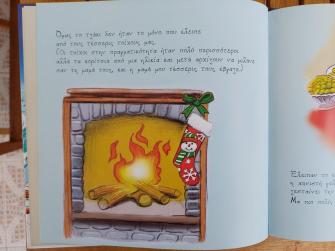 Όμως το τζάκι δεν ήταν το μόνο που έλειπε
από τους τέσσερις τοίχους μας.
(Οι τοίχοι στην πραγματικότητα ήταν πολύ περισσότεροι
αλλά τα κορίτσια από μια ηλικία και μετά αρχίζουν να μιλάνε
σαν τη μαμά τους, και η μαμά μου τέσσερις τους έβγαζε.)
Έλειπαν το
η
Μα πιο πολύ